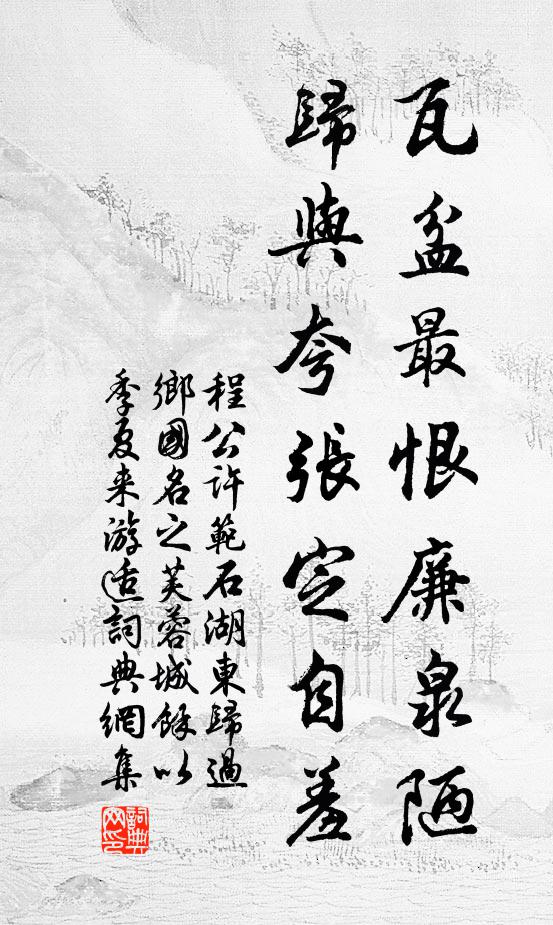 瓦盆最恨廉泉陋
歸與夸張定自羞
程公許範石湖東歸過
鄉國名之芙蓉城餘以
季夏来游适詞典網集
詞典
网印